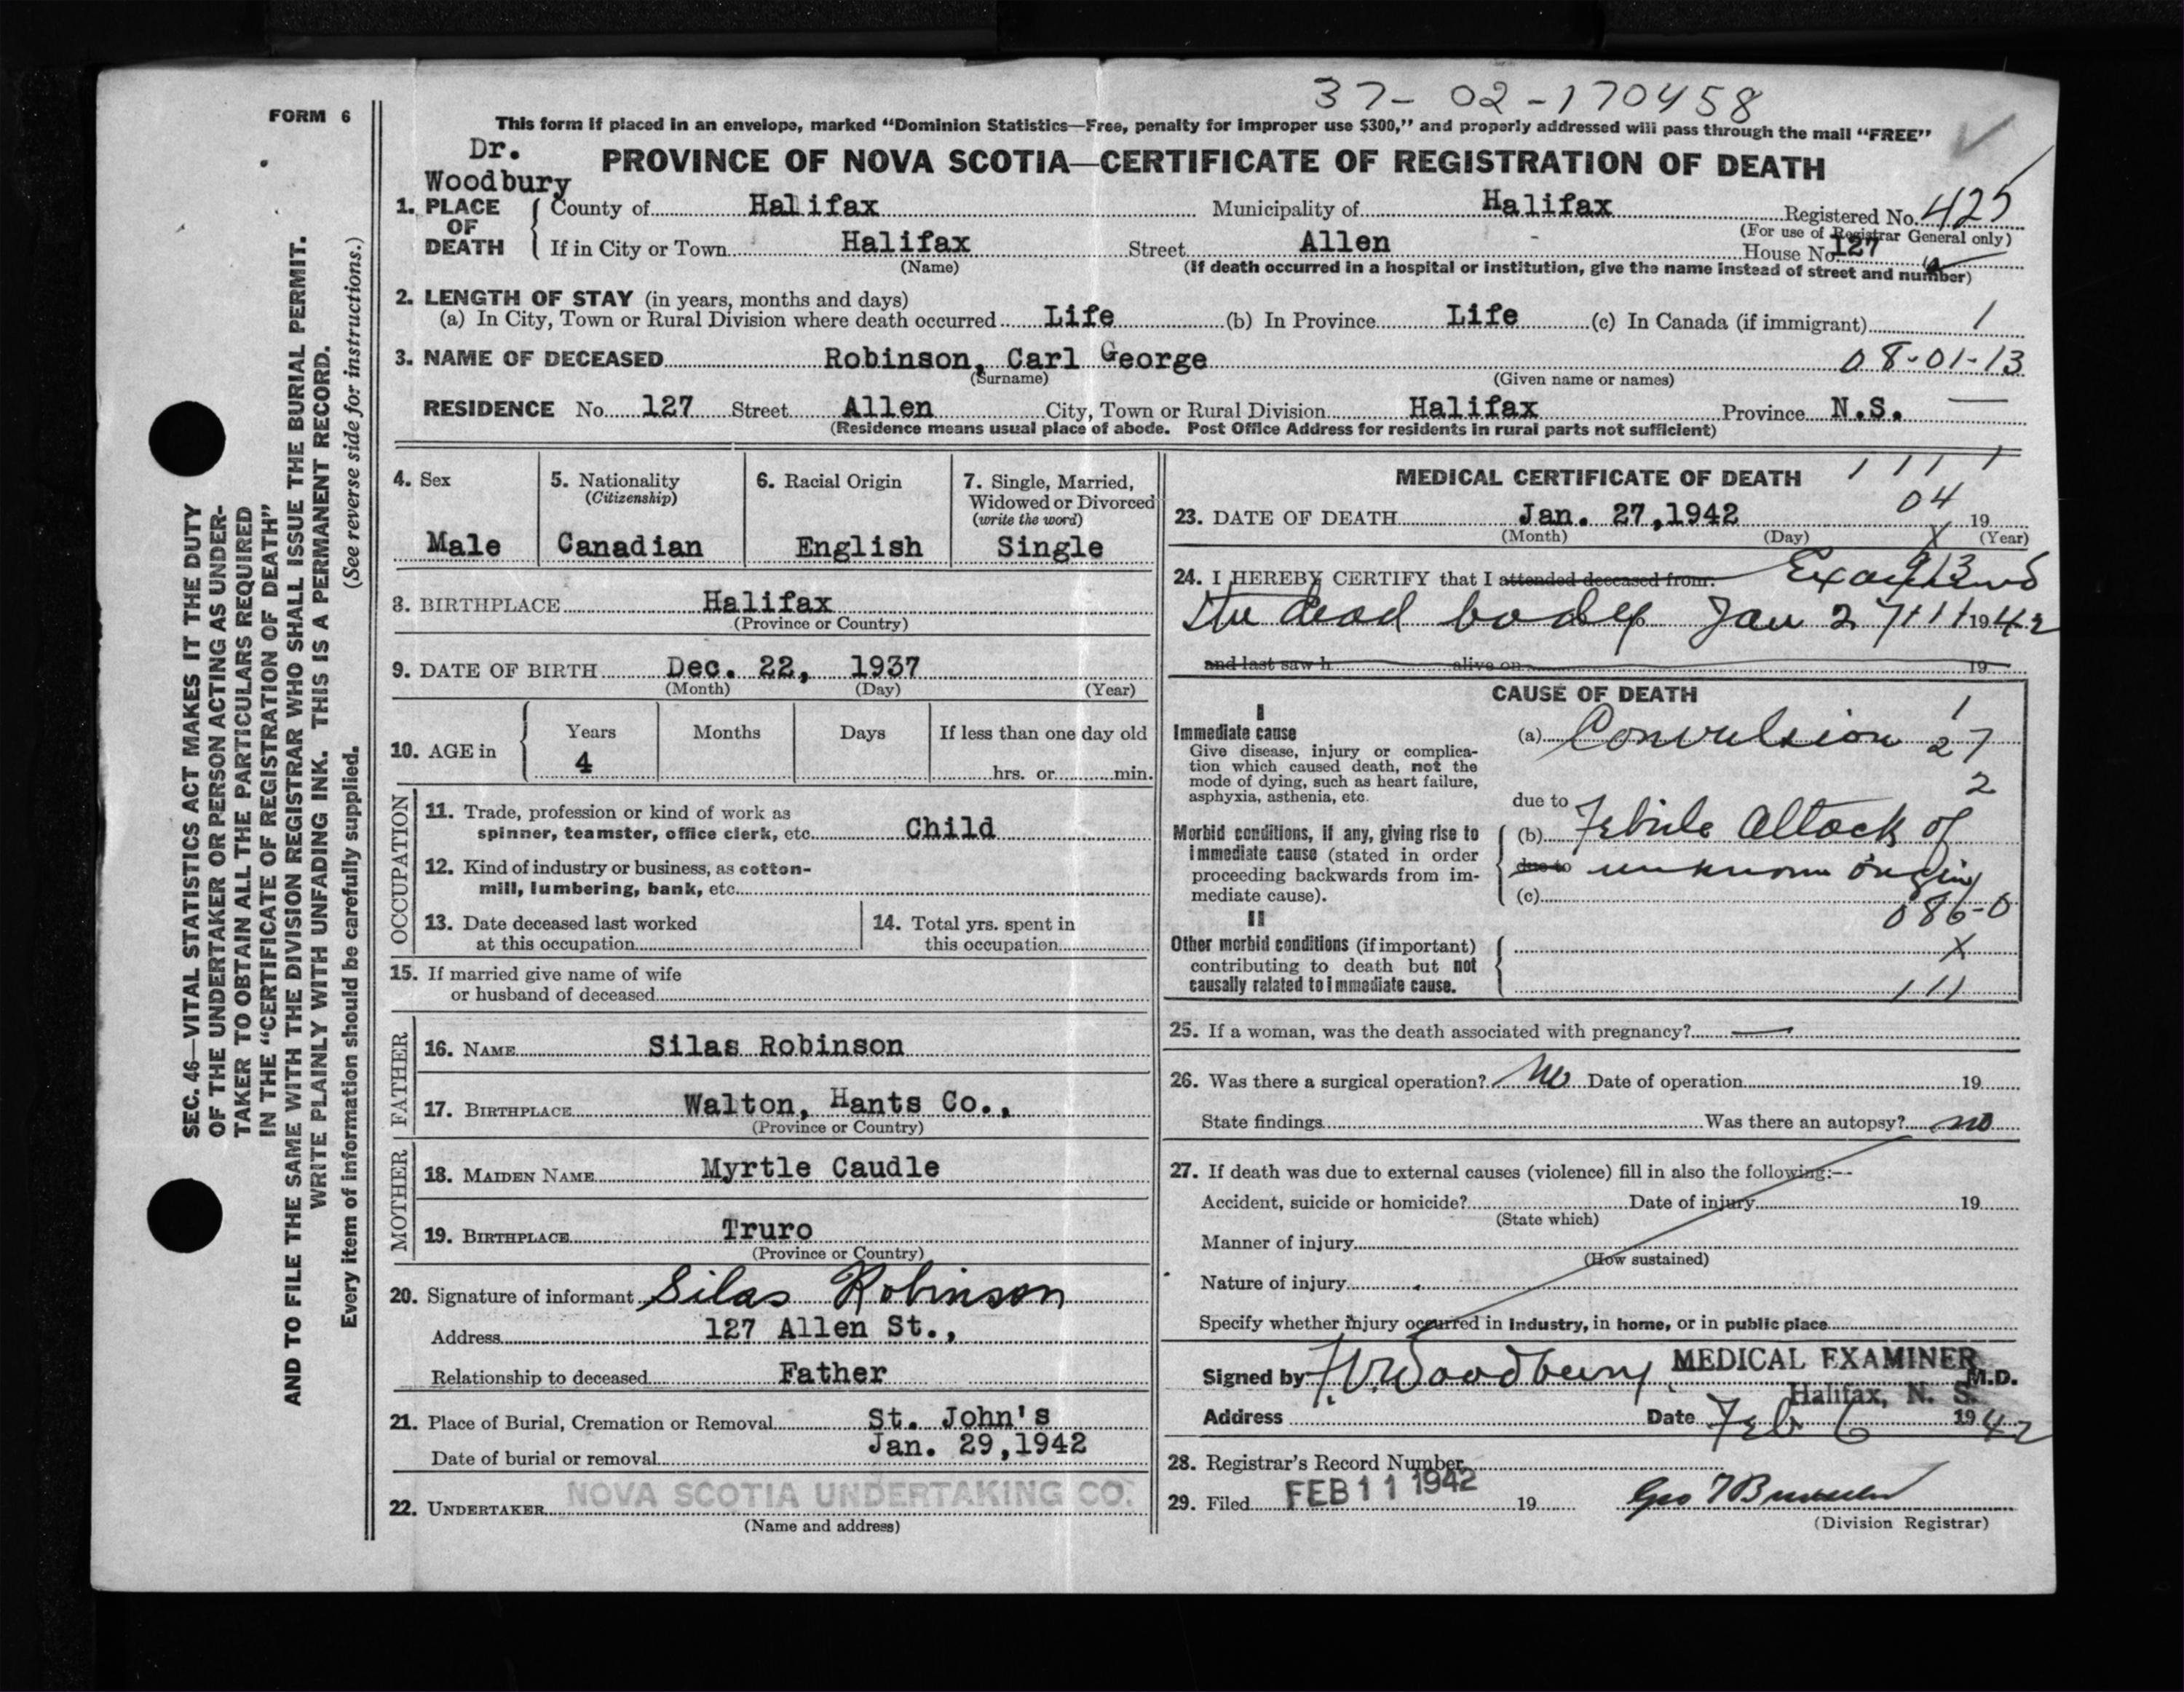 37-02-170458
FORM 6
This form if placed in an envelope, marked “Dominion Statistics—Free, penalty for improper use $300,” and properly addressed will pass through the mail “FREE”
Dr.
Woodbury
PROVINCE OF NOVA SCOTIA—CERTIFICATE OF REGISTRATION OF DEATH
1. PLACE OF DEATH
County of Halifax Municipality of Halifax Registered No. 425
(For use of Registrar General only)
If in City or Town Halifax Street Allen House No 127
(Name) (If death occurred in a hospital or institution, give the name instead of street and number)
2. LENGTH OF STAY (in years, months and days)
(a) In City, Town or Rural Division where death occurred Life (b) In Province Life (c) In Canada (if immigrant) 1
3. NAME OF DECEASED Robinson, Carl George 08-01-13
(Surname) (Given name or names)
RESIDENCE No. 127 Street Allen City, Town or Rural Division Halifax Province N.S.
(Residence means usual place of abode. Post Office Address for residents in rural parts not sufficient)
4. Sex
Male
5. Nationality
(Citizenship)
Canadian
6. Racial Origin
English
7. Single, Married,
Widowed or Divorced
(write the word)
Single
8. BIRTHPLACE Halifax
(Province or Country)
9. DATE OF BIRTH Dec. 22, 1937
(Month) (Day) (Year)
10. AGE in
Years Months Days If less than one day old
4 hrs. or min.
OCCUPATION
11. Trade, profession or kind of work as
spinner, teamster, office clerk, etc. Child
12. Kind of industry or business, as cotton-
mill, lumbering, bank, etc.
13. Date deceased last worked
at this occupation
14. Total yrs. spent in
this occupation
15. If married give name of wife
or husband of deceased
FATHER
16. NAME Silas Robinson
17. BIRTHPLACE Walton, Hants Co.,
(Province or Country)
MOTHER
18. MAIDEN NAME Myrtle Caudle
19. BIRTHPLACE Truro
(Province or Country)
20. Signature of informant Silas Robinson
Address 127 Allen St.,
Relationship to deceased Father
21. Place of Burial, Cremation or Removal St. John's
Date of burial or removal Jan. 29,1942
22. UNDERTAKER NOVA SCOTIA UNDERTAKING CO.
(Name and address)
MEDICAL CERTIFICATE OF DEATH 1 11 1
04
23. DATE OF DEATH Jan. 27,1942 19
(Month) (Day) X (Year)
913
24. I HEREBY CERTIFY that I attended deceased from: Examined
the dead body Jan 27 111 1942
and last saw h alive on 19
CAUSE OF DEATH
I
Immediate cause
Give disease, injury or complica-
tion which caused death, not the
mode of dying, such as heart failure,
asphyxia, asthenia, etc.
1
(a) Convulsion 27
2
due to
Morbid conditions, if any, giving rise to
immediate cause (stated in order
proceeding backwards from im-
mediate cause).
(b) Febrile Attack of
due to unknown origin
(c)
086-0
II
Other morbid conditions (if important)
contributing to death but not
causally related to immediate cause.
X
111
25. If a woman, was the death associated with pregnancy? —
26. Was there a surgical operation? No Date of operation 19
State findings Was there an autopsy? no
27. If death was due to external causes (violence) fill in also the following:—
Accident, suicide or homicide? Date of injury 19
(State which)
Manner of injury
(How sustained)
Nature of injury
Specify whether injury occurred in industry, in home, or in public place
Signed by Woodbury MEDICAL EXAMINER M.D.
Halifax, N. S.
Address Date Feb 6 1942
28. Registrar's Record Number
29. Filed FEB 11 1942 19 Geo
(Division Registrar)
SEC. 46—VITAL STATISTICS ACT MAKES IT THE DUTY
OF THE UNDERTAKER OR PERSON ACTING AS UNDER-
TAKER TO OBTAIN ALL THE PARTICULARS REQUIRED
IN THE “CERTIFICATE OF REGISTRATION OF DEATH”
AND TO FILE THE SAME WITH THE DIVISION REGISTRAR WHO SHALL ISSUE THE BURIAL PERMIT.
WRITE PLAINLY WITH UNFADING INK. THIS IS A PERMANENT RECORD.
Every item of information should be carefully supplied. (See reverse side for instructions.)